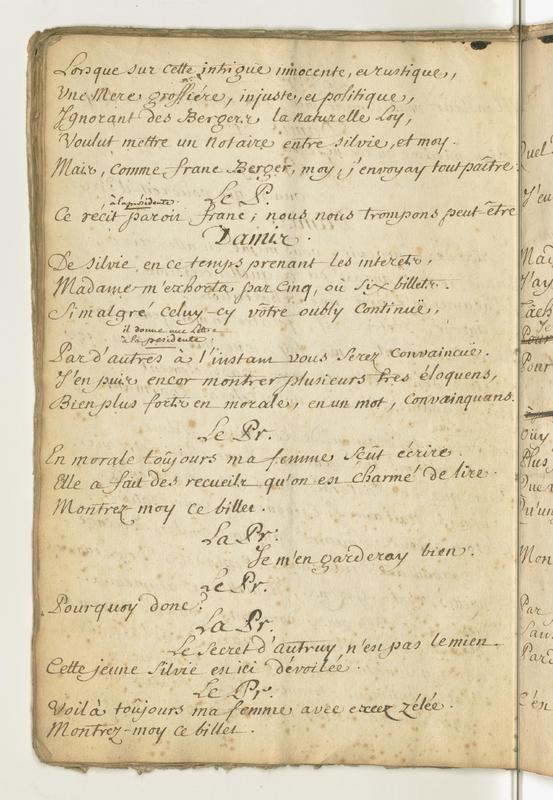 Lorsque sur cette intrigue innocente, et rustique,
Une Mere grossiére, injuste, et politique,
Ignorant des Bergers la naturelle Loy,
Voulut mettre un Notaire entre silvie, et moy.
Mais, comme franc Berger, moy, j'envoyay tout paître.
Le P.
à la présidente.
Ce récit paroît franc; nous nous trompons peut-être
Damis.
De silvie en ce temps prenant les interets,
Madame m'exhorta par Cinq, où six billets.
Si malgré celuy-cy vôtre oubly Continuë,
il donne une Lettre
à la présidente.
Par d'autres à l'instant vous serez Convaincuë.
J'en puis encor montrer plusieurs tres éloquens,
Bien plus forts en morale, en un mot, Convainquans.
Le Pr.
En morale toûjours ma femme sçût écrire
Elle a fait des recueils qu'on est charmé de lire.
Montrez moy ce billet.
La Pr.
Je m'en garderay bien.
Le Pr.
Pourquoy donc?
La Pr.
Le Secret d'autruy n'est pas le mien.
Cette jeune Silvie est ici dévoilée.
Le Pr.
Voilà toûjours ma femme avec excez zélée.
Montrez-moy ce billet.